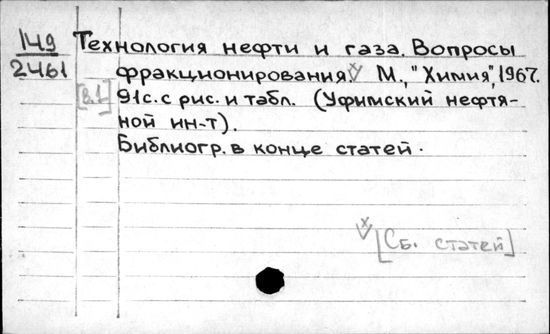 149 Технология нефти и газа. Вопросы
2461 фракционирования. М., "Химия", 1967.
[в.1] 91с. с рис. и табл. (Уфимский нефтя-
ной ин-т).
Библиогр. в конце статей.
[Сб. статей]